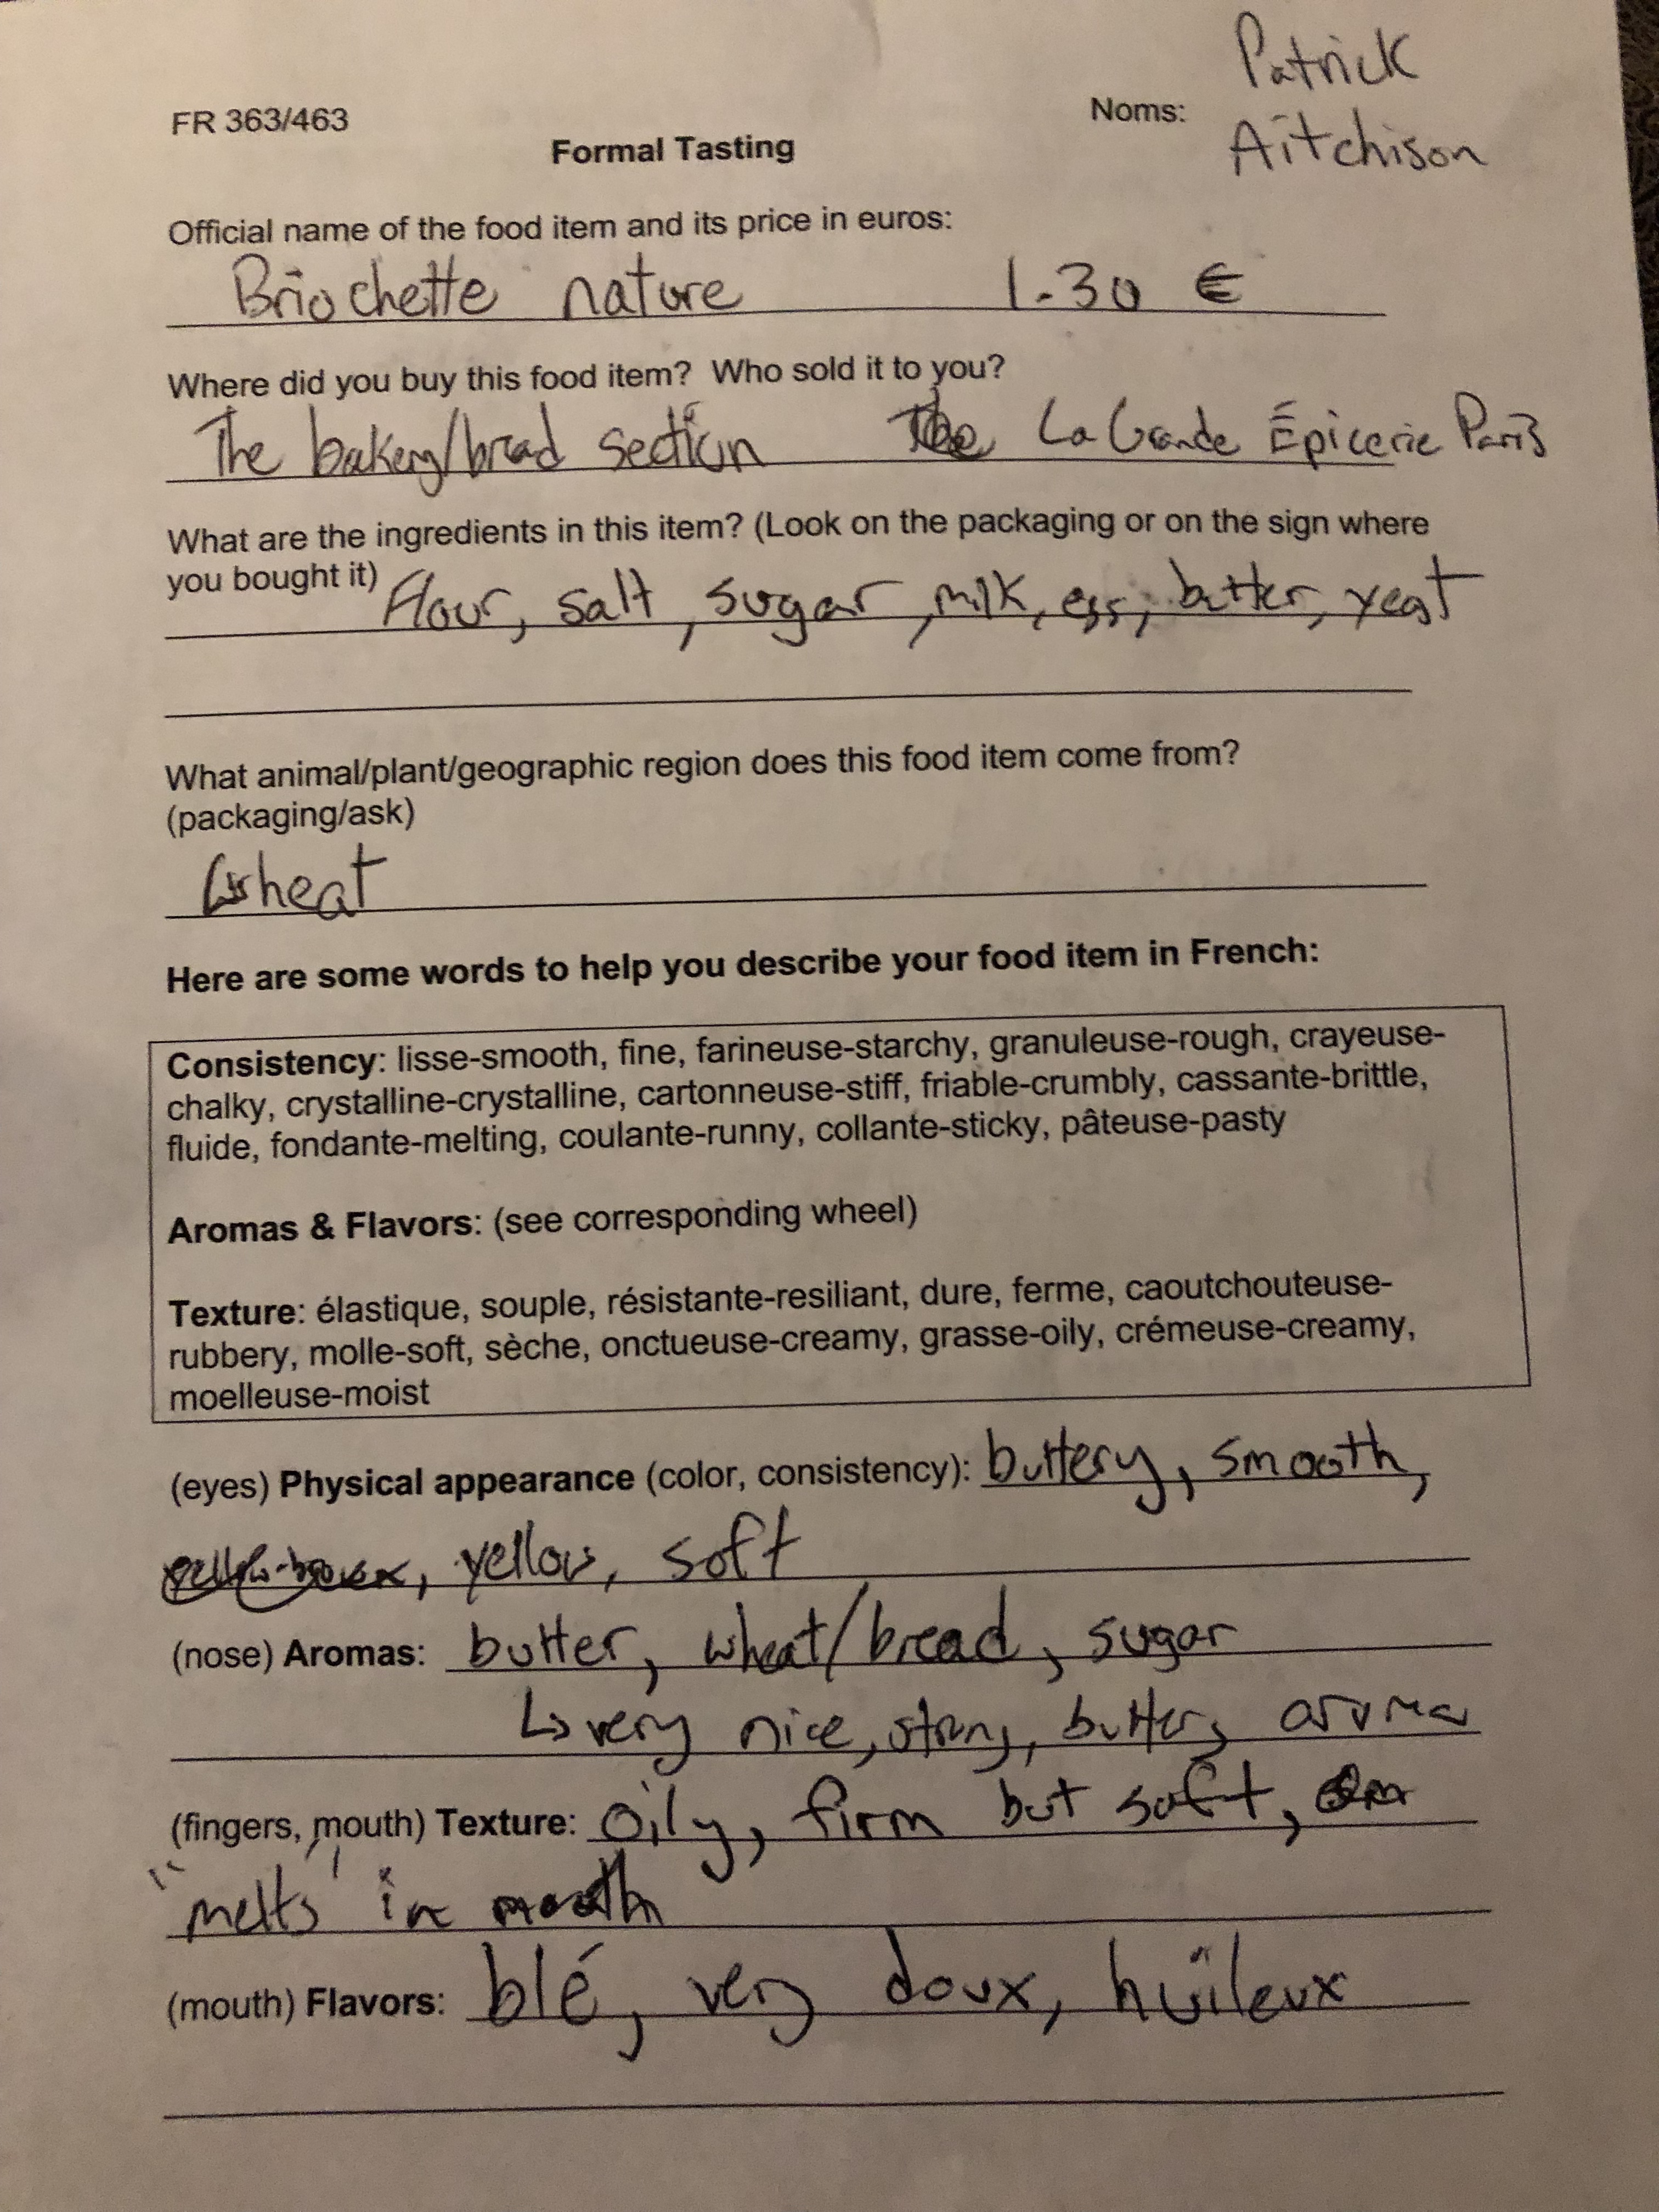 Patrick
FR 363/463 Noms:
Aitchison
Formal Tasting
Official name of the food item and its price in euros:
Briochette nature 1.30 €
Where did you buy this food item? Who sold it to you?
The bakery/bread section The La Grande Épicerie Paris
What are the ingredients in this item? (Look on the packaging or on the sign where
you bought it) Flour, salt, sugar, milk, egg, butter, yeast
What animal/plant/geographic region does this food item come from?
(packaging/ask)
Wheat
Here are some words to help you describe your food item in French:
Consistency: lisse-smooth, fine, farineuse-starchy, granuleuse-rough, crayeuse-
chalky, crystalline-crystalline, cartonneuse-stiff, friable-crumbly, cassante-brittle,
fluide, fondante-melting, coulante-runny, collante-sticky, pâteuse-pasty
Aromas & Flavors: (see corresponding wheel)
Texture: élastique, souple, résistante-resiliant, dure, ferme, caoutchouteuse-
rubbery, molle-soft, sèche, onctueuse-creamy, grasse-oily, crémeuse-creamy,
moelleuse-moist
(eyes) Physical appearance (color, consistency): buttery, smooth,
, yellow, soft
(nose) Aromas: butter, wheat/bread, sugar
↳ very nice, strong, buttery aroma
(fingers, mouth) Texture: oily, firm but soft,
"melts" in mouth
(mouth) Flavors: blé, very doux, huileux